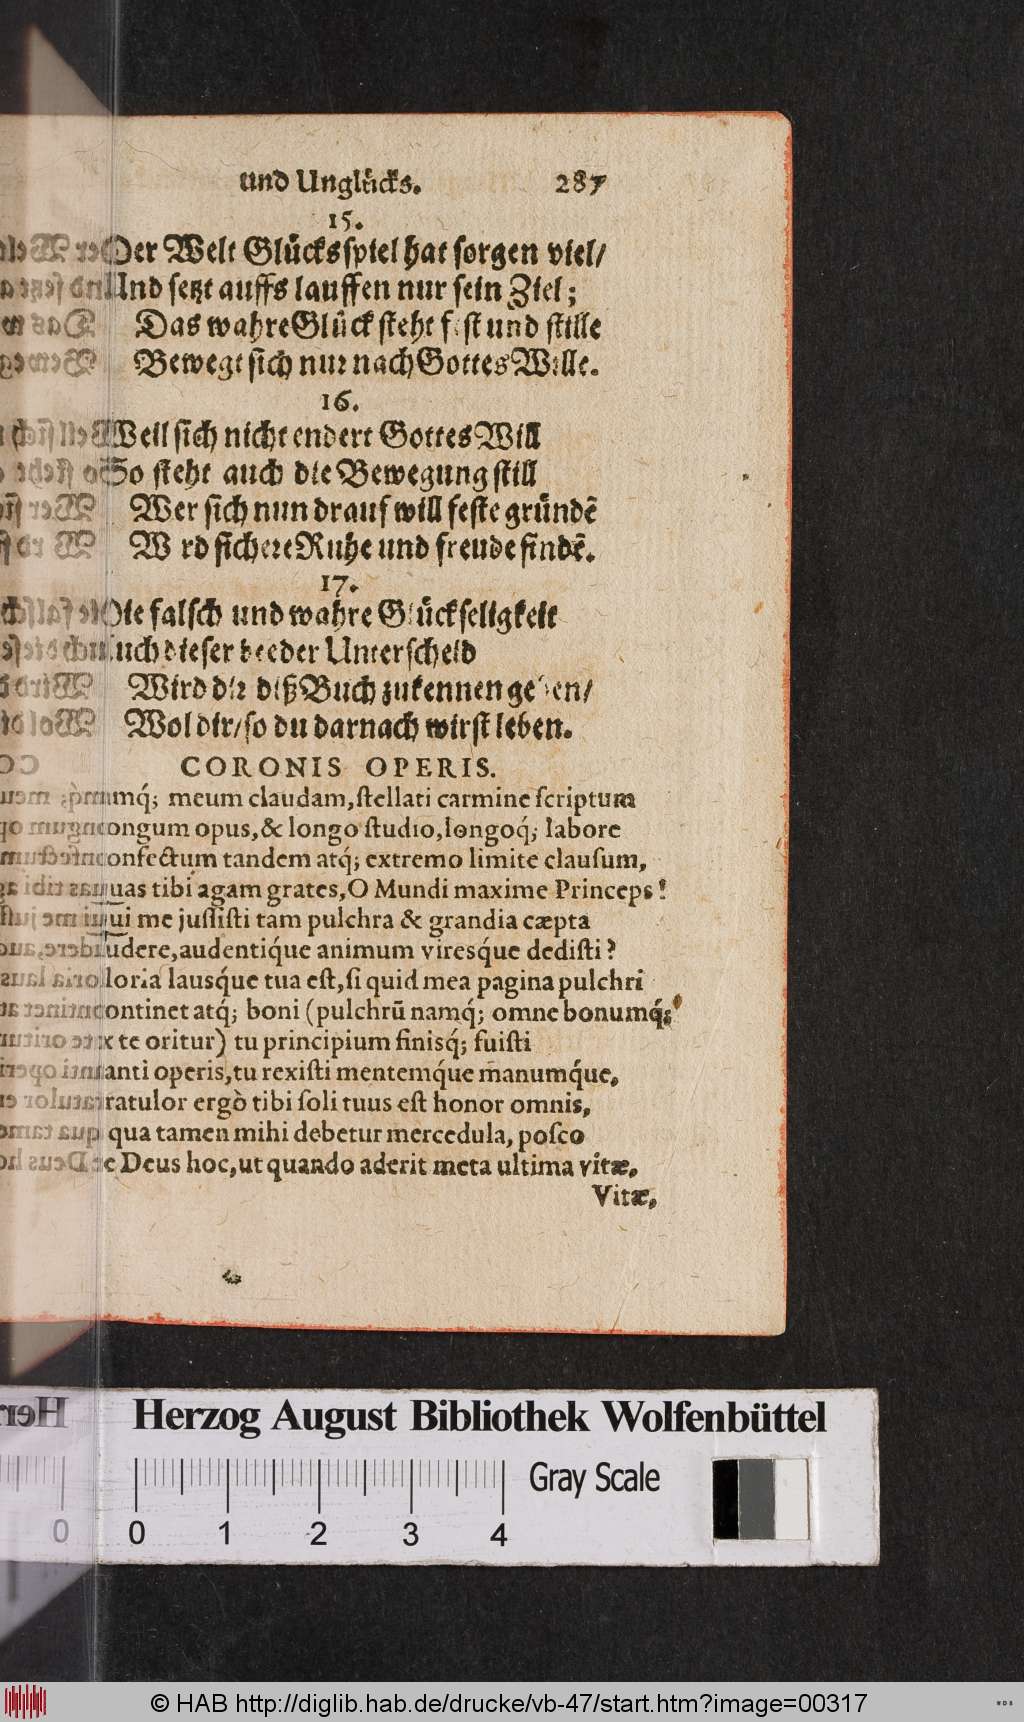 und Unglücks. 287
15.
Der Welt Glücksspiel hat sorgen viel/
Und setzt auffs lauffen nur sein Ziel;
Das wahre Glück steht fest und stille
Bewegt sich nur nach Gottes Wille.
16.
Weil sich nicht endert Gottes Will
So steht auch die Bewegung still
Wer sich nun drauf will feste gründẽ
W rd sichere Ruhe und freude findẽ.
17.
Die falsch und wahre Glückseligkeit
Auch dieser beeder Unterscheid
Wird dir diß Buch zukennen geben/
Wol dir/so du darnach wirst leben.
CORONIS OPERIS.
meum claudam, stellati carmine scriptum
longum opus,& longo studio,longoq́; labore
confectum tandem atq́; extremo limite clausum,
quas tibi agam grates,O Mundi maxime Princeps!
qui me jussisti tam pulchra & grandia cæpta
ludere,audentiq́ue animum viresq́ue dedisti?
Gloria lausq́ue tua est,si quid mea pagina pulchri
continet atq́; boni (pulchrũ namq́; omne bonumq́;
ex te oritur) tu principium finisq́; fuisti
tanti operis,tu rexisti mentemq́ue manumq́ue,
gratulor ergò tibi soli tuus est honor omnis,
qua tamen mihi debetur mercedula, posco
te Deus hoc,ut quando aderit meta ultima vitæ,
Vitæ,
Herzog August Bibliothek Wolfenbüttel
Gray Scale
0 0 1 2 3 4
© HAB http://diglib.hab.de/drucke/vb-47/start.htm?image=00317